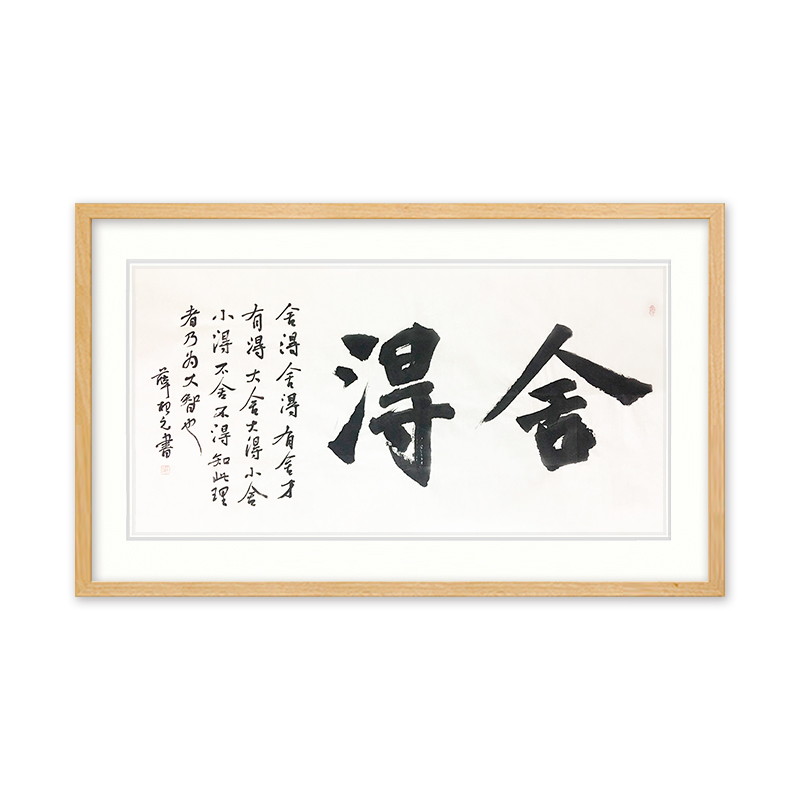 舍得
舍得舍得有舍才
有得大舍大得小舍
小得不舍不得知此理
者乃为大智也
薛
書